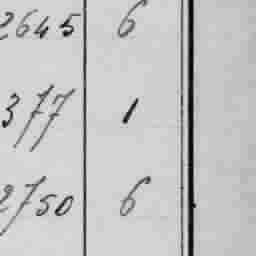 2645 6
377 1
2750 6